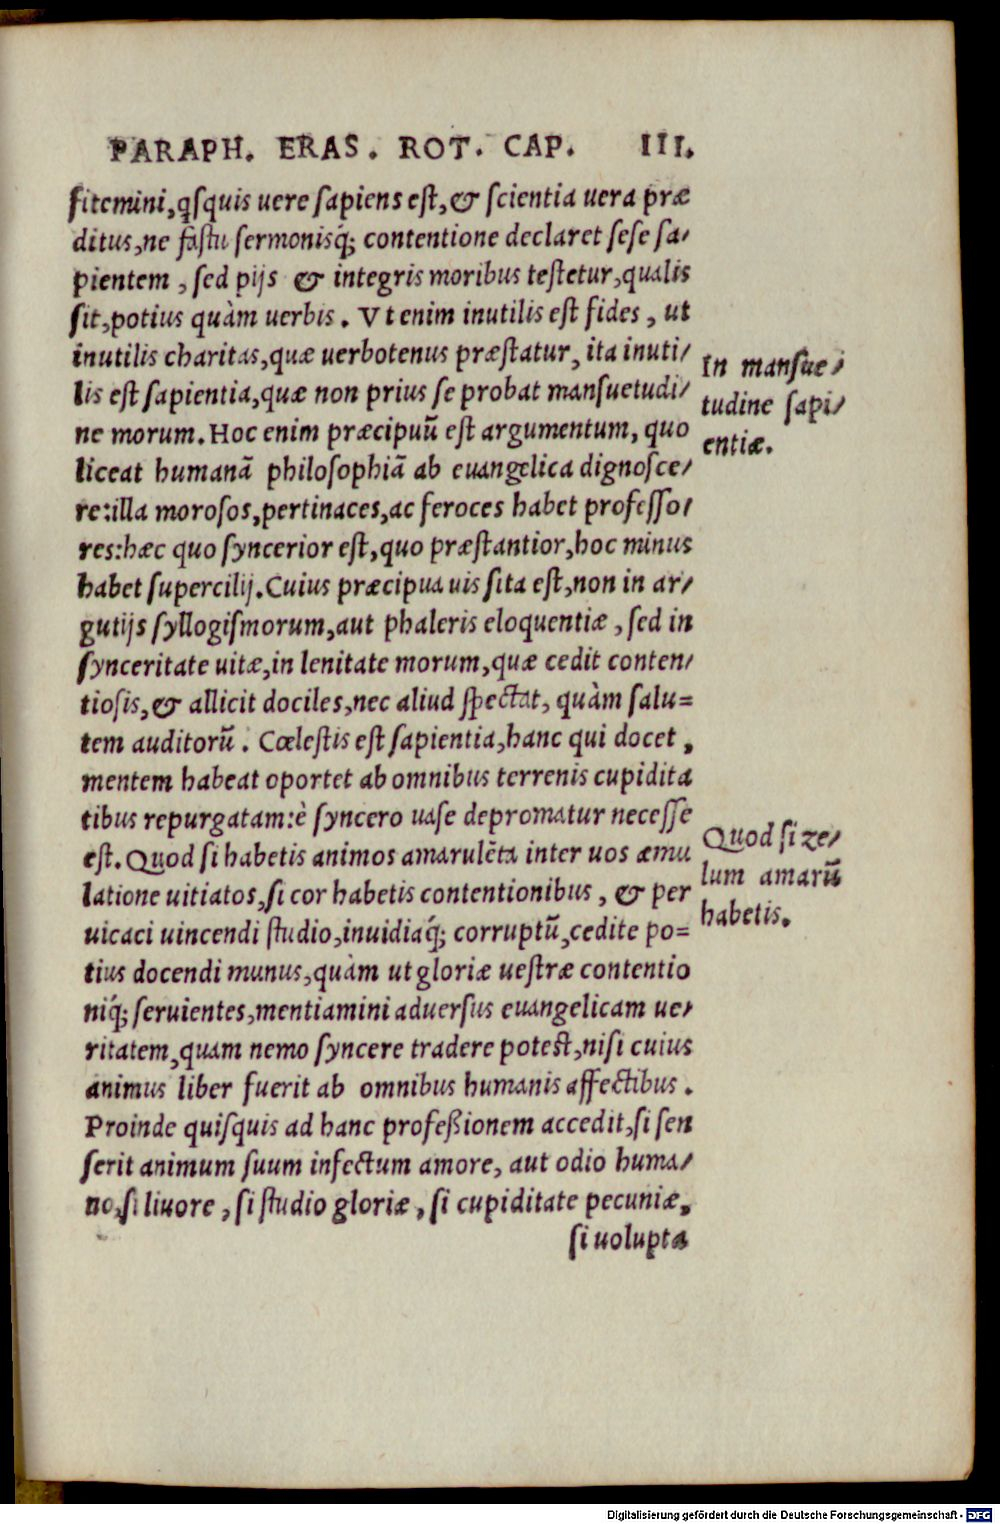 PARAPH. ERAS. ROT. CAP. III.
fitemini, qsquis uere sapiens est, & scientia uera præ
ditus, ne fastu sermonisq́; contentione declaret sese sa/
pientem, sed pijs & integris moribus testetur, qualis
sit, potius quàm uerbis. Vt enim inutilis est fides, ut
inutilis charitas, quæ uerbotenus præstatur, ita inuti/
lis est sapientia, quæ non prius se probat mansuetudi/
ne morum. Hoc enim præcipuũ est argumentum, quo
liceat humanã philosophiã ab euangelica dignosce/
re: illa morosos, pertinaces, ac feroces habet professo/
res: hæc quo syncerior est, quo præstantior, hoc minus
habet supercilij. Cuius præcipua uis sita est, non in ar/
gutijs syllogismorum, aut phaleris eloquentiæ, sed in
synceritate uitæ, in lenitate morum, quæ cedit conten/
tiosis, & allicit dociles, nec aliud spectat, quàm salu=
tem auditorũ. Cœlestis est sapientia, hanc qui docet,
mentem habeat oportet ab omnibus terrenis cupidita
tibus repurgatam: è syncero uase depromatur necesse
est. Quod si habetis animos amarulẽta inter uos æmu
latione uitiatos, si cor habetis contentionibus, & per
uicaci uincendi studio, inuidiaq́; corruptũ, cedite po=
tius docendi munus, quàm ut gloriæ uestræ contentio
niq́; seruientes, mentiamini aduersus euangelicam ue/
ritatem, quam nemo syncere tradere potest, nisi cuius
animus liber fuerit ab omnibus humanis affectibus.
Proinde quisquis ad hanc profeßionem accedit, si sen
serit animum suum infectum amore, aut odio huma/
no, si liuore, si studio gloriæ, si cupiditate pecuniæ,
si uolupta
In mansue/
tudine sapi/
entiæ.
Quod si ze/
lum amarũ
habetis.
Digitalisierung gefördert durch die Deutsche Forschungsgemeinschaft - DFG